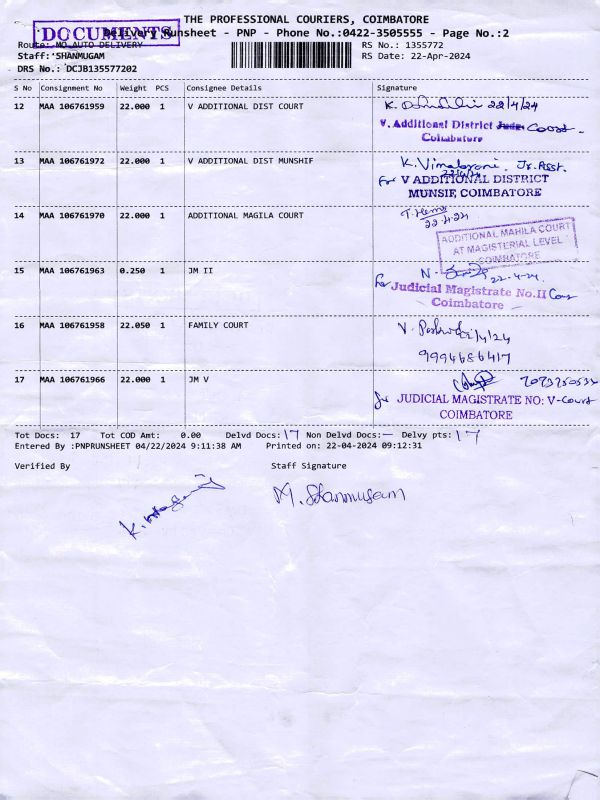 THE PROFESSIONAL COURIERS, COIMBATORE
DOCUMENTS
Delivery Runsheet - PNP - Phone No.:0422-3505555 - Page No.:2
Route: MO AUTO DELIVERY
RS No.: 1355772
Staff: SHANMUGAM
RS Date: 22-Apr-2024
DRS No.: DCJB135577202
S No Consignment No Weight PCS Consignee Details Signature
12 MAA 106761959 22.000 1 V ADDITIONAL DIST COURT
22/4/24
V. Additional District Court
Coimbatore
13 MAA 106761972 22.000 1 V ADDITIONAL DIST MUNSIF
K. Vimalarani, Jr. Asst.
22/4/24
For V ADDITIONAL DISTRICT
MUNSIF, COIMBATORE
14 MAA 106761970 22.000 1 ADDITIONAL MAGILA COURT
T. Hema
22.4.24
ADDITIONAL MAHILA COURT
AT MAGISTERIAL LEVEL
COIMBATORE
15 MAA 106761963 0.250 1 JM II
22-4-24
For Judicial Magistrate No.II
Coimbatore
16 MAA 106761958 22.050 1 FAMILY COURT
9994686417
17 MAA 106761966 22.000 1 JM V
For JUDICIAL MAGISTRATE NO: V-Court
COIMBATORE
Tot Docs: 17 Tot COD Amt: 0.00 Delvd Docs: 17 Non Delvd Docs: — Delvy pts: 17
Entered By :PNPRUNSHEET 04/22/2024 9:11:38 AM Printed on: 22-04-2024 09:12:31
Verified By Staff Signature
M. Shanmugam